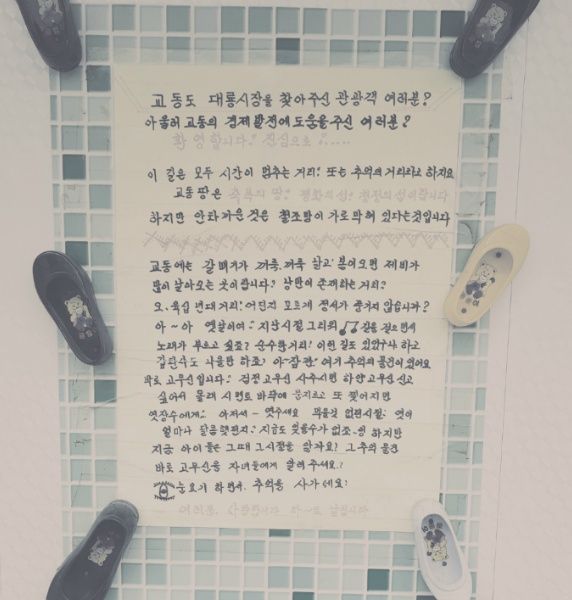 교동도 대룡시장을 찾아주신 관광객 여러분?
아울러 교동의 경제발전에 도움을 주신 여러분?
환영합니다. 진심으로 .....
이 길은 모두 시간이 멈추는 거리? 또는 추억의 거리라고 하지요
교동 땅은 축복의 땅? 평화의 섬? 청정의 섬이랍니다
하지만 안타까운것은 철조망이 가로막혀 있다는것입니다
교동에는 갈매기가 끼룩, 끼룩 날고 봄이오면 제비가
많이 날아오는 곳이랍니다? 낭만이 존재하는 거리?
오, 육십 년대 거리? 어딘지 모르게 정서가 풍기지 않습니까?
아~아 옛날이여? 지난시절 그리워 길을 걸으면서
노래가 부르고 싶죠? 순수한거리? 이런 길도 있었구나 하고
감탄사도 나올만 하죠? 아~잠깐? 여기 추억의 물건이 있어요
바로 고무신입니다? 검정고무신 사주시면 하얀고무신 신고
싶어서 몰래 시멘트 바닥에 문지르고 또 찢어지면
엿장수에게? 아저씨 - 엿주세요 먹을것 없던시절? 엿이
얼마나 달콤했던지? 지금도 엿장수가 없죠 하지만
지금 아이들은 그때 그시절을 알까요? 그 추억 물건
바로 고무신을 자녀들에게 알려 주세요?
눈요기 하면서, 추억을 사가세요?
여러분, 사랑합니다